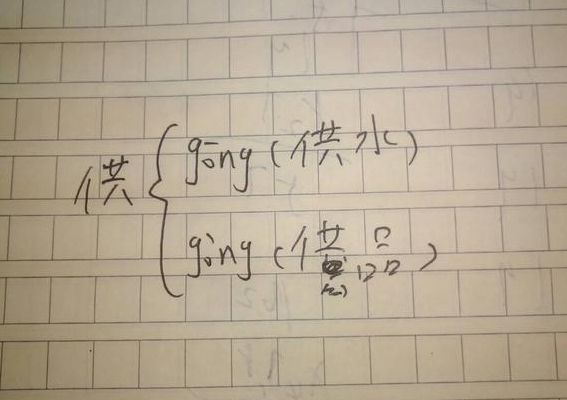 供 { gōng (供水)
gòng (供品)